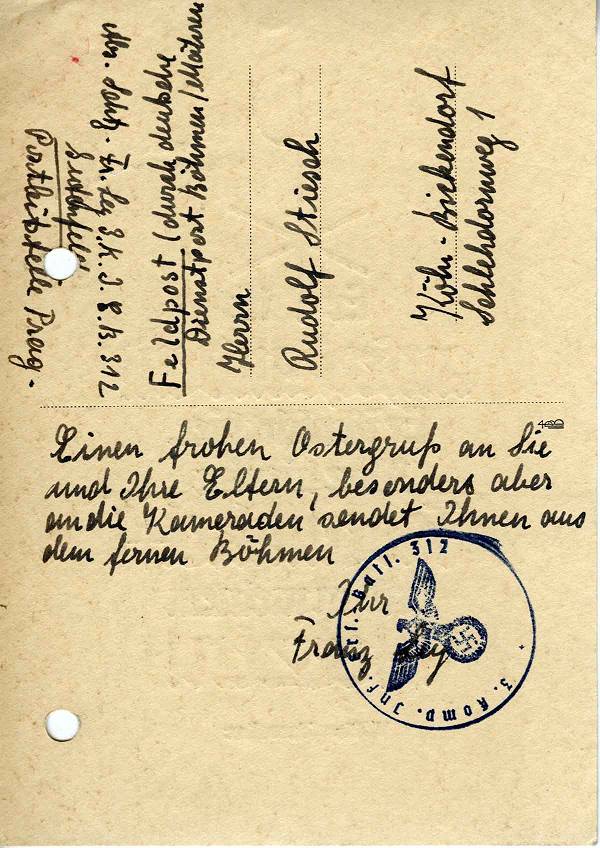 Feldpost (durch deutsche
Dienstpost Böhmen/Mähren
Herrn
Rudolf Stiesch
Köln-Bickendorf
Schlehdornweg 1
3. K. J. E. B. 312
Postleitstelle Prag.
Einen frohen Ostergruß an Sie
und Ihre Eltern, besonders aber
an die Kameraden sendet Ihnen aus
dem fernen Böhmen
Ihr
Franz Ley
3. Komp. Inf. Ers. Batl. 312